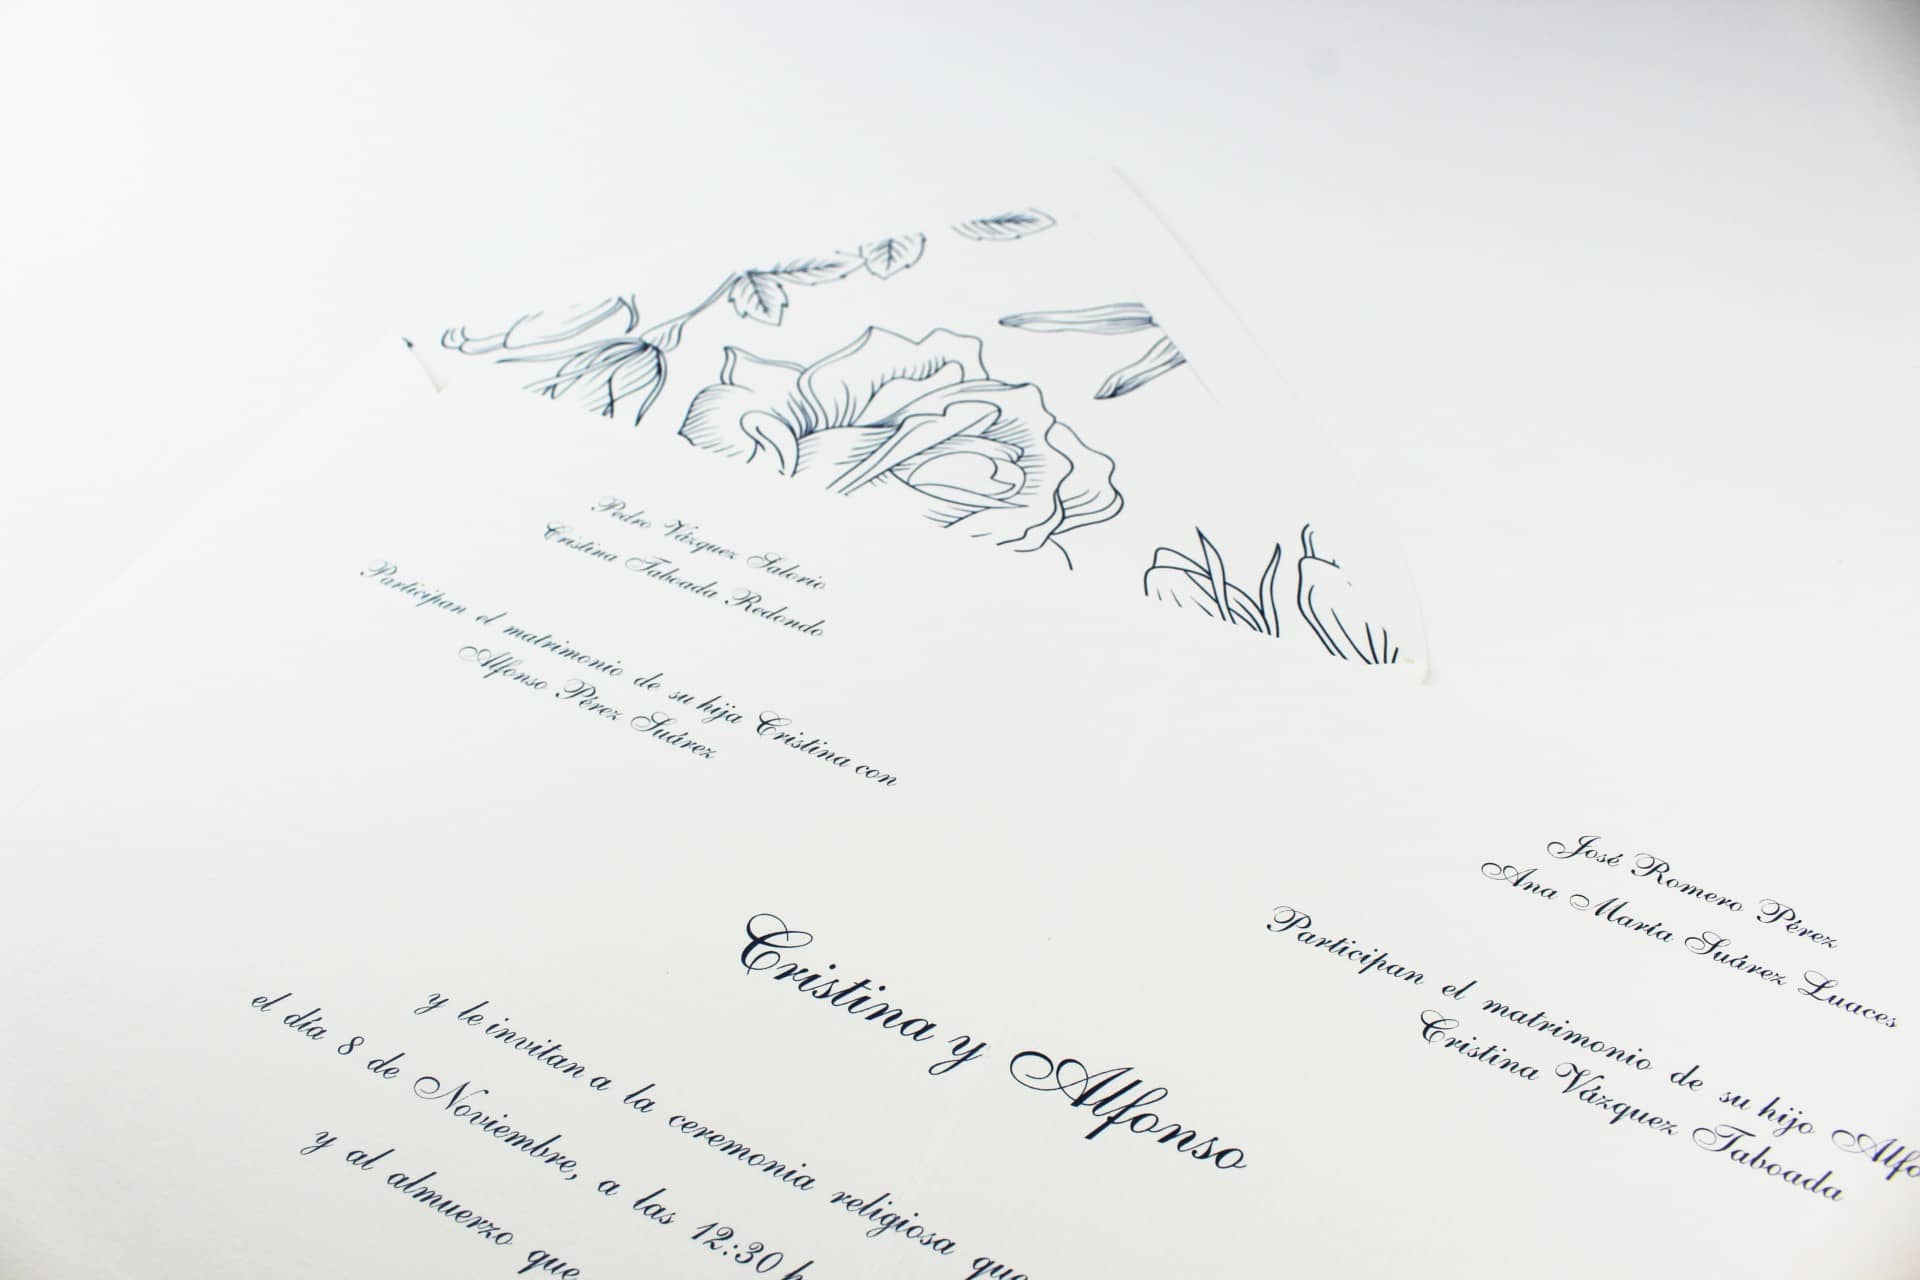 Pedro Vázquez Salorio
Cristina Taboada Redondo
Participan el matrimonio de su hija Cristina con
Alfonso Pérez Suárez
José Romero Pérez
Ana María Suárez Luaces
Participan el matrimonio de su hijo Alfo
Cristina Vázquez Taboada
Cristina y Alfonso
y le invitan a la ceremonia religiosa que
el día 8 de Noviembre, a las 12:30 h
y al almuerzo que